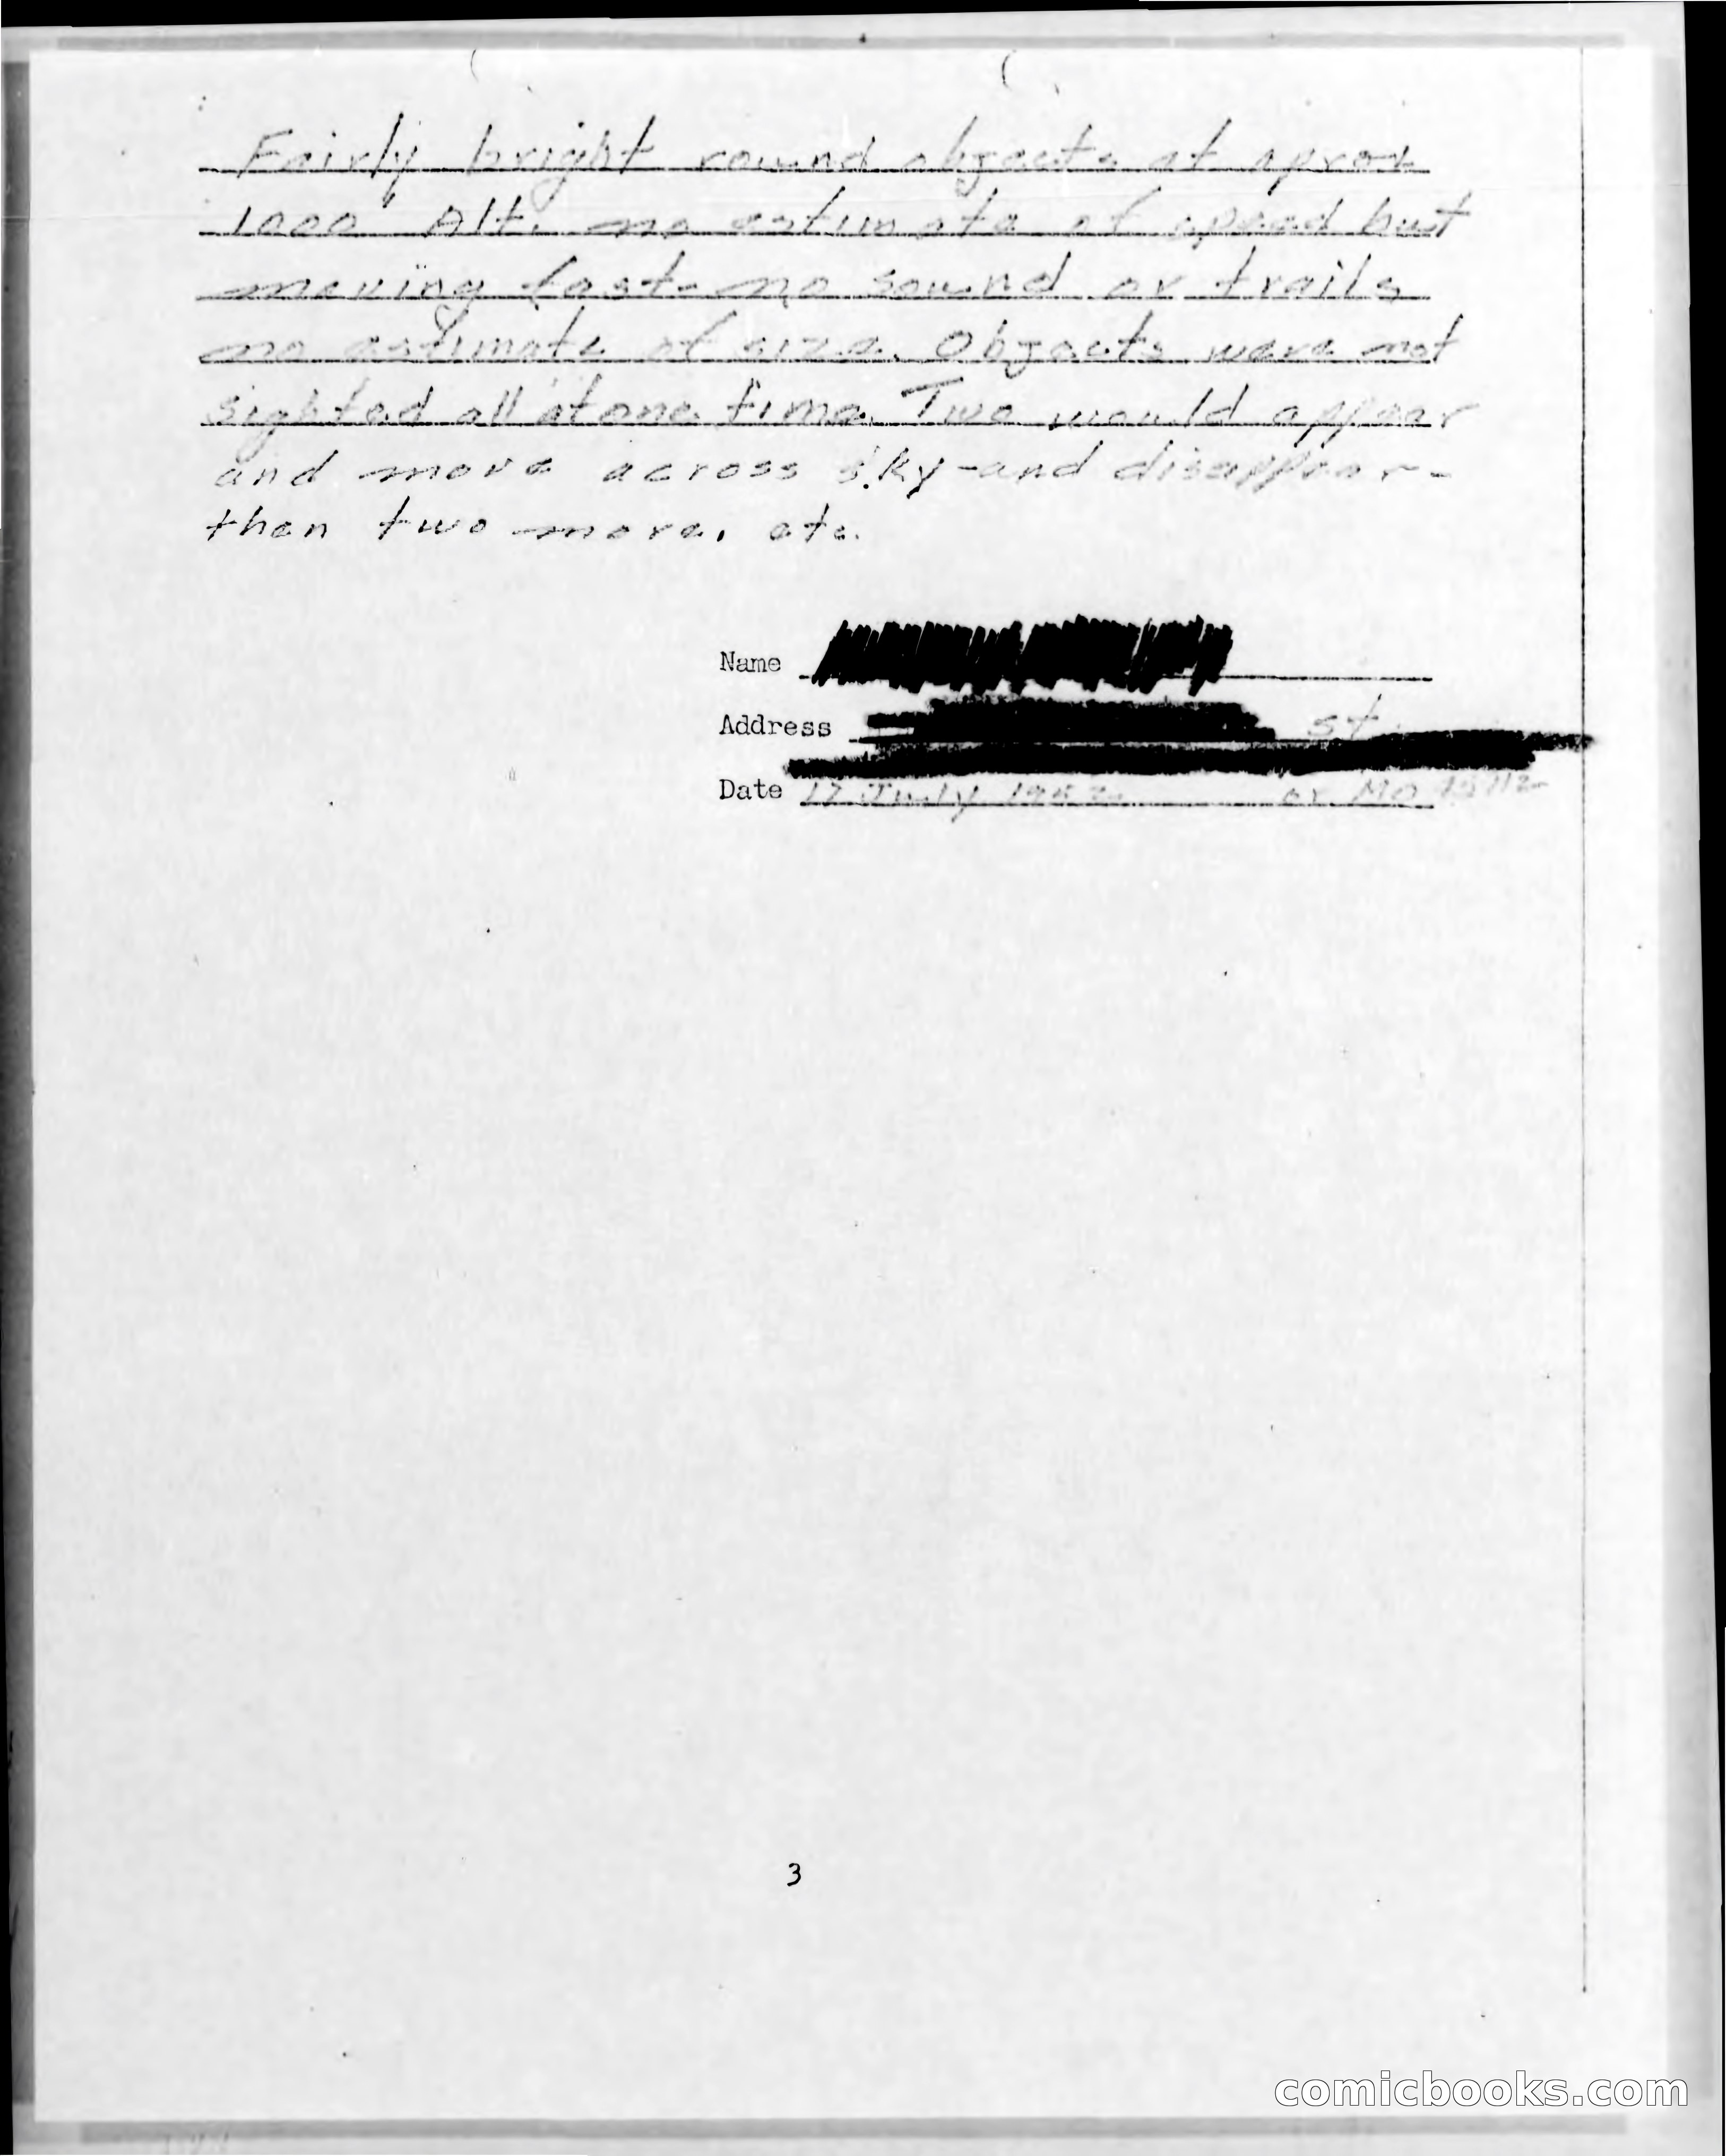 Fairly bright round objects at aprox
1000' Alt. no estimate of speed but
moving fast - no sound or trails
no estimate of size. Objects were not
sighted all at one time. Two would appear
and move across sky - and disappear -
then two more, etc.
Name
Address st
Date 17 July 1952 or MO
3
comicbooks.com